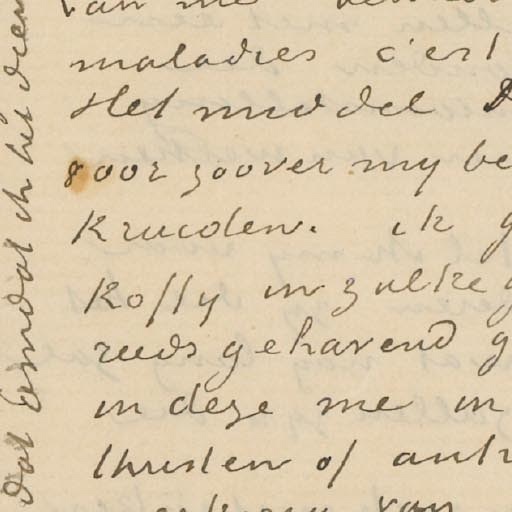 van me
maladies c'est
Het middel
voor zoover my be
Kruiden. ik g
Koffy in zulke g
reeds gehavend g
in deze me in
thuslen of ant
van
Dat omdat ik his dien